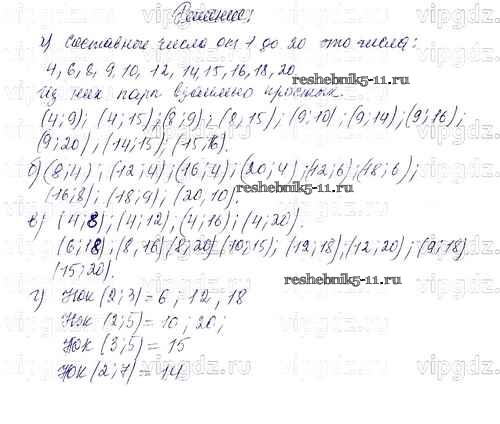 Решение:
а) Составные числа от 1 до 20 это числа:
4, 6, 8, 9, 10, 12, 14, 15, 16, 18, 20
reshebnik5-11.ru
Из них пары взаимно простых.
(4; 9); (4; 15); (8; 9); (8, 15); (9; 10); (9; 14); (9; 16);
(9; 20); (14; 15); (15; 16).
б) (8; 4); (12; 4); (16; 4); (20; 4); (12; 6); (18; 6);
(16; 8); (18; 9); (20, 10).
reshebnik5-11.ru
в) (4; 8); (4; 12); (4; 16); (4; 20).
(6; 18); (8, 16); (8; 20) (10; 15); (12; 18); (12; 20); (9; 18)
(15; 20).
reshebnik5-11.ru
г) Нок (2; 3) = 6; 12, 18
Нок (2; 5) = 10; 20;
Нок (3; 5) = 15
Нок (2; 7) = 14
vipgdz.ru